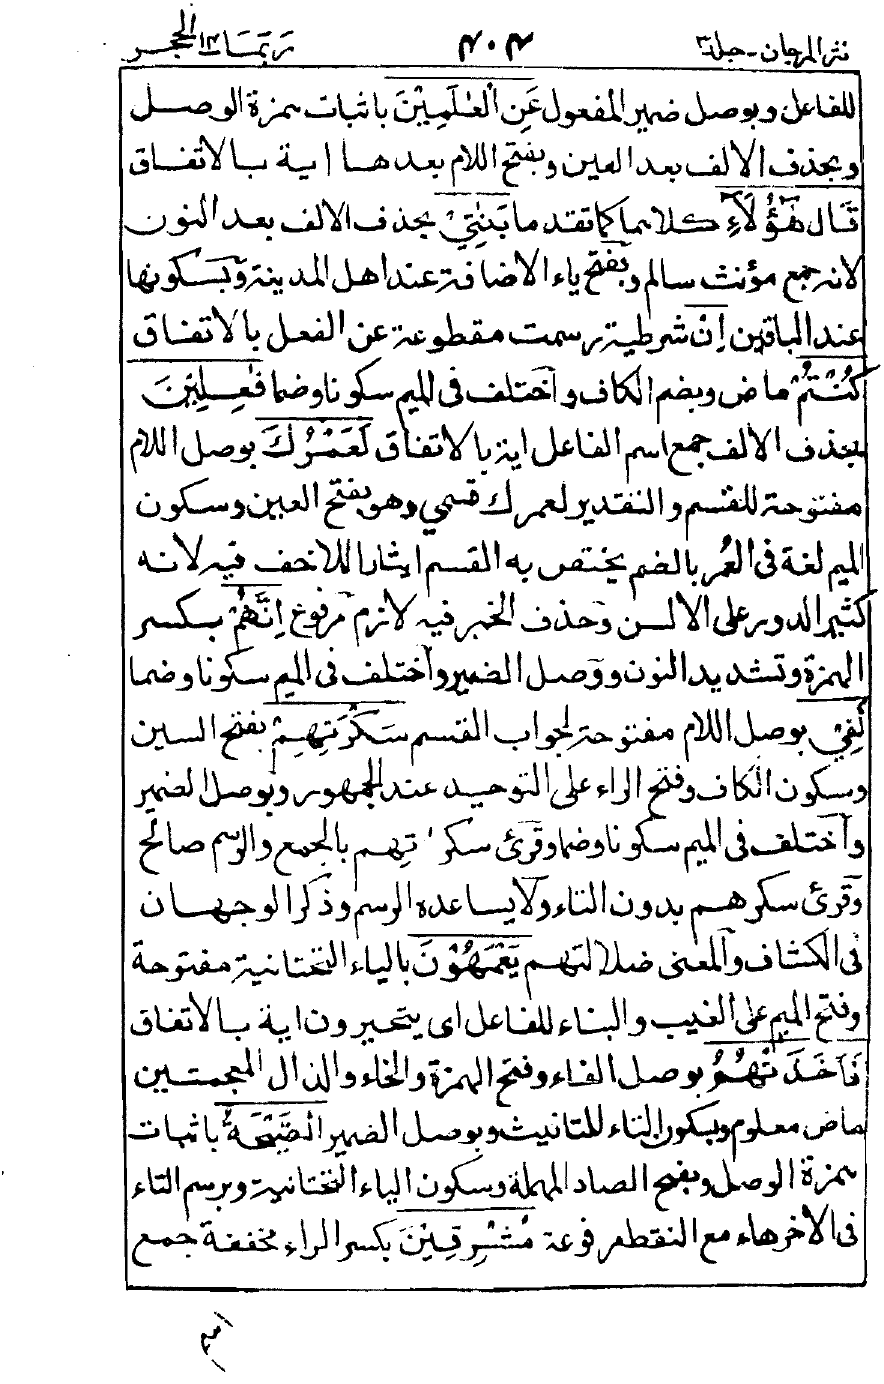 نثر المرجان - جلد ٣ ٤٠٤ ربما ١٤ الحجر
للفاعل وبوصل ضمير المفعول عَنِ الْعٰلَمِيْنَ باثبات همزة الوصل
وبحذف الالف بعد العين وبفتح اللام بعدها اية بالاتفاق
قَالَ هٰٓؤُلَآءِ كلاهما كما تقدما بَنٰتِيْٓ بحذف الالف بعد النون
لانه جمع مؤنث سالم وبفتح ياء الاضافة عند اهل المدينة وبسكونها
عند الباقين اِنْ شرطية رسمت مقطوعة عن الفعل بالاتفاق
كُنْتُمْ ماض وبضم الكاف واختلف فى الميم سكونا وضما فٰعِلِيْنَ
بحذف الالف جمع اسم الفاعل اية بالاتفاق لَعَمْرُكَ بوصل اللام
مفتوحة للقسم والتقدير لعمرك قسمي وهو بفتح العين وسكون
الميم لغة فى العُمر بالضم يختص به القسم ايثارا للاخف فيه لانه
كثير الدور على الالسن وحذف الخبر فيه لازم مرفوع اِنَّهُمْ بكسر
الهمزة وتشديد النون ووصل الضمير واختلف فى الميم سكونا وضما
لَفِيْ بوصل اللام مفتوحة لجواب القسم سَكْرَتِهِمْ بفتح السين
وسكون الكاف وفتح الراء على التوحيد عند الجمهور وبوصل الضمير
واختلف فى الميم سكونا وضما وقرئ سكراتهم بالجمع والرسم صالح
وقرئ سكرهم بدون التاء ولا يساعده الرسم وذكر الوجهان
فى الكشاف والمعنى ضلالتهم يَعْمَهُوْنَ بالياء التحتانية مفتوحة
وفتح الميم على الغيب والبناء للفاعل اى يتحيرون اية بالاتفاق
فَاَخَذَتْهُمُ بوصل الفاء وفتح الهمزة والخاء والذال المعجمتين
ماض معلوم وبسكون التاء للتانيث وبوصل الضمير الصَّيْحَةُ باثبات
همزة الوصل وبفتح الصاد المهملة وسكون الياء التحتانية وبرسم التاء
فى الآخر هاء مع النقط مرفوعة مُشْرِقِيْنَ بكسر الراء مخففة جمع